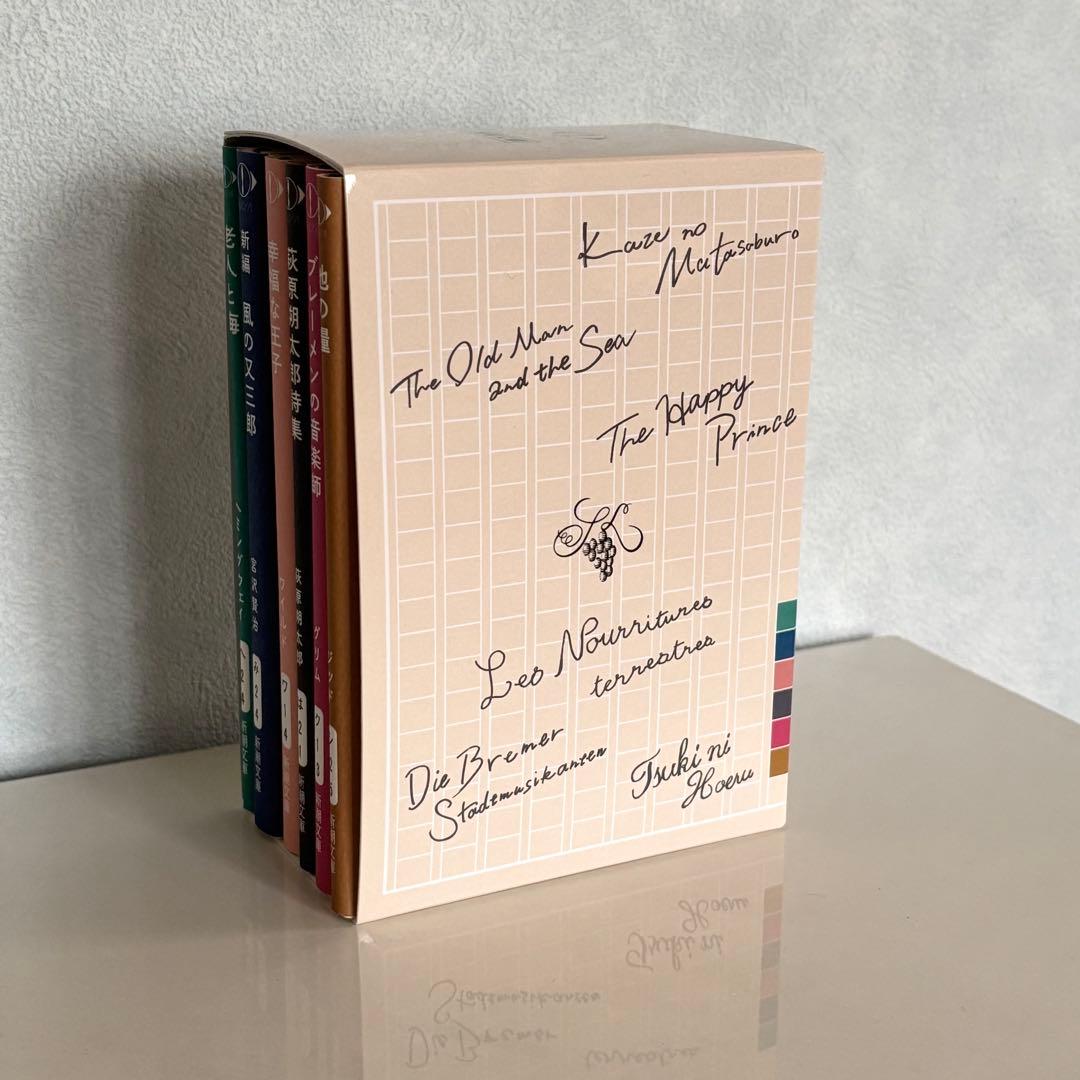 老人と海
新編 風の又三郎
宮沢賢治
み24
新潮文庫
幸福な王子
ワイルド
ワ14
新潮文庫
萩原朔太郎詩集
萩原朔太郎
は21
新潮文庫
ブレーメンの音楽師
グリム
新潮文庫
地の糧
ジッド
新潮文庫
Kaze no
Matasaburo
The Old Man
and the Sea
The Happy
Prince
SK
Les Nourritures
terrestres
Die Bremer
Stadtmusikanten
Tsuki ni
Hoeru